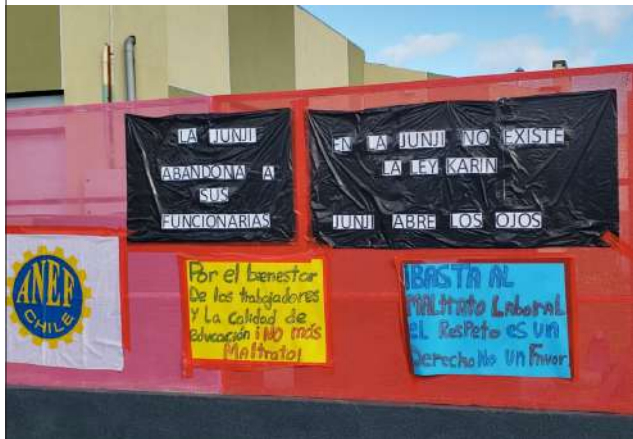 LA JUNJI
ABANDONA A
SUS
FUNCIONARIAS
EN LA JUNJI NO EXISTE
LA LEY KARIN
JUNJI ABRE LOS OJOS
ANEF
CHILE
Por el bienestar
De los trabajadores
y La calidad de
educación ¡No más
Maltrato!
¡BASTA AL
MALtrato LaboraL
eL RasPeto es un
Derecho No un Favor